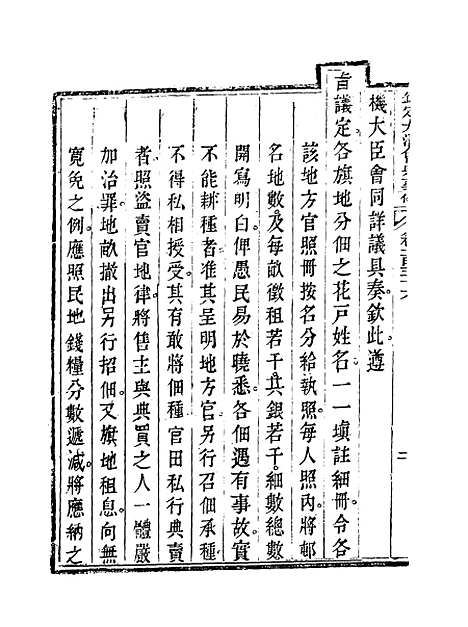 機大臣會同詳議具奏欽此遵
旨議定各旗地分佃之花戶姓名一一塡註細冊令各
該地方官照冊按名分給執照每人照內將邨
名地數及每畝徵租若干共銀若干細數總數
開寫明白俾愚民易於曉悉各佃遇有事故實
不能耕種者准其呈明地方官另行召佃承種
不得私相授受其有敢將佃種官田私行典賣
者照盜賣官地律將售主與典買之人一體嚴
加治罪地畝撤出另行招佃又旗地租息向無
寬免之例應照民地錢糧分數遞減將應納之